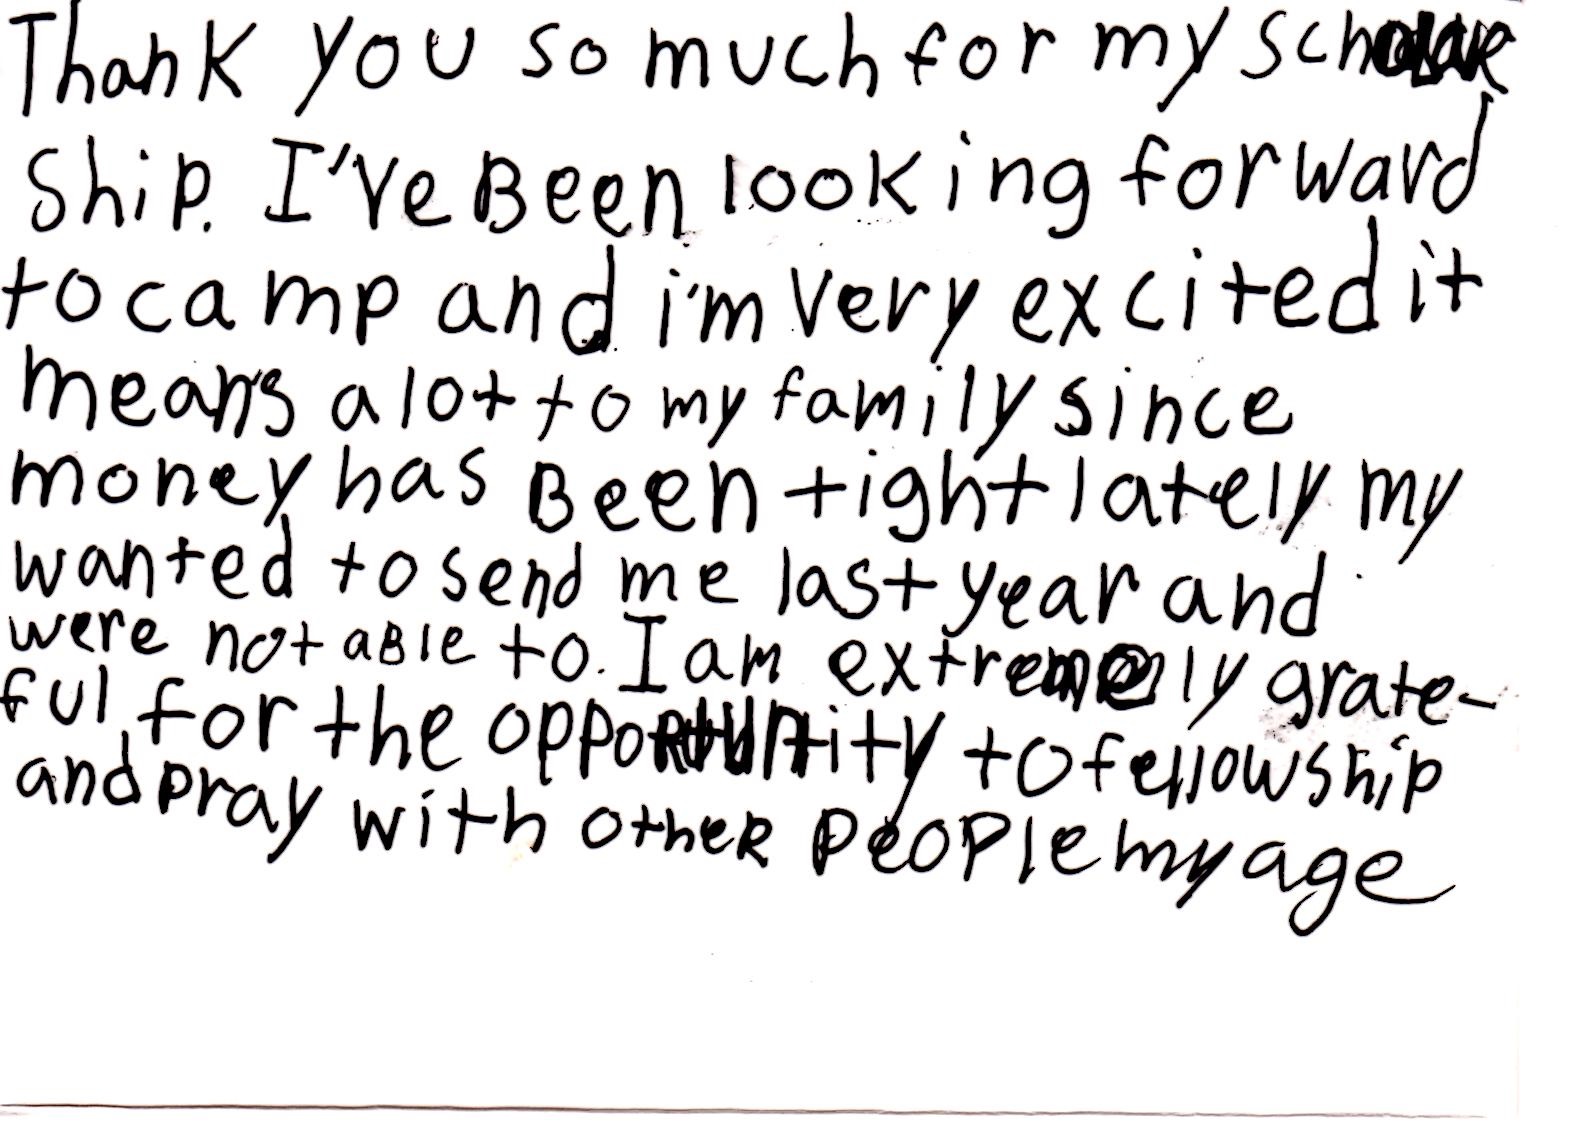 Thank you so much for my scholar
ship. I've Been looking forward
to camp and i'm very excited it
means alot to my family since
money has Been tight lately my
wanted to send me last year and
were not aBle to. I am extremely grate-
ful for the opportunity to fellowship
and pray with other people my age